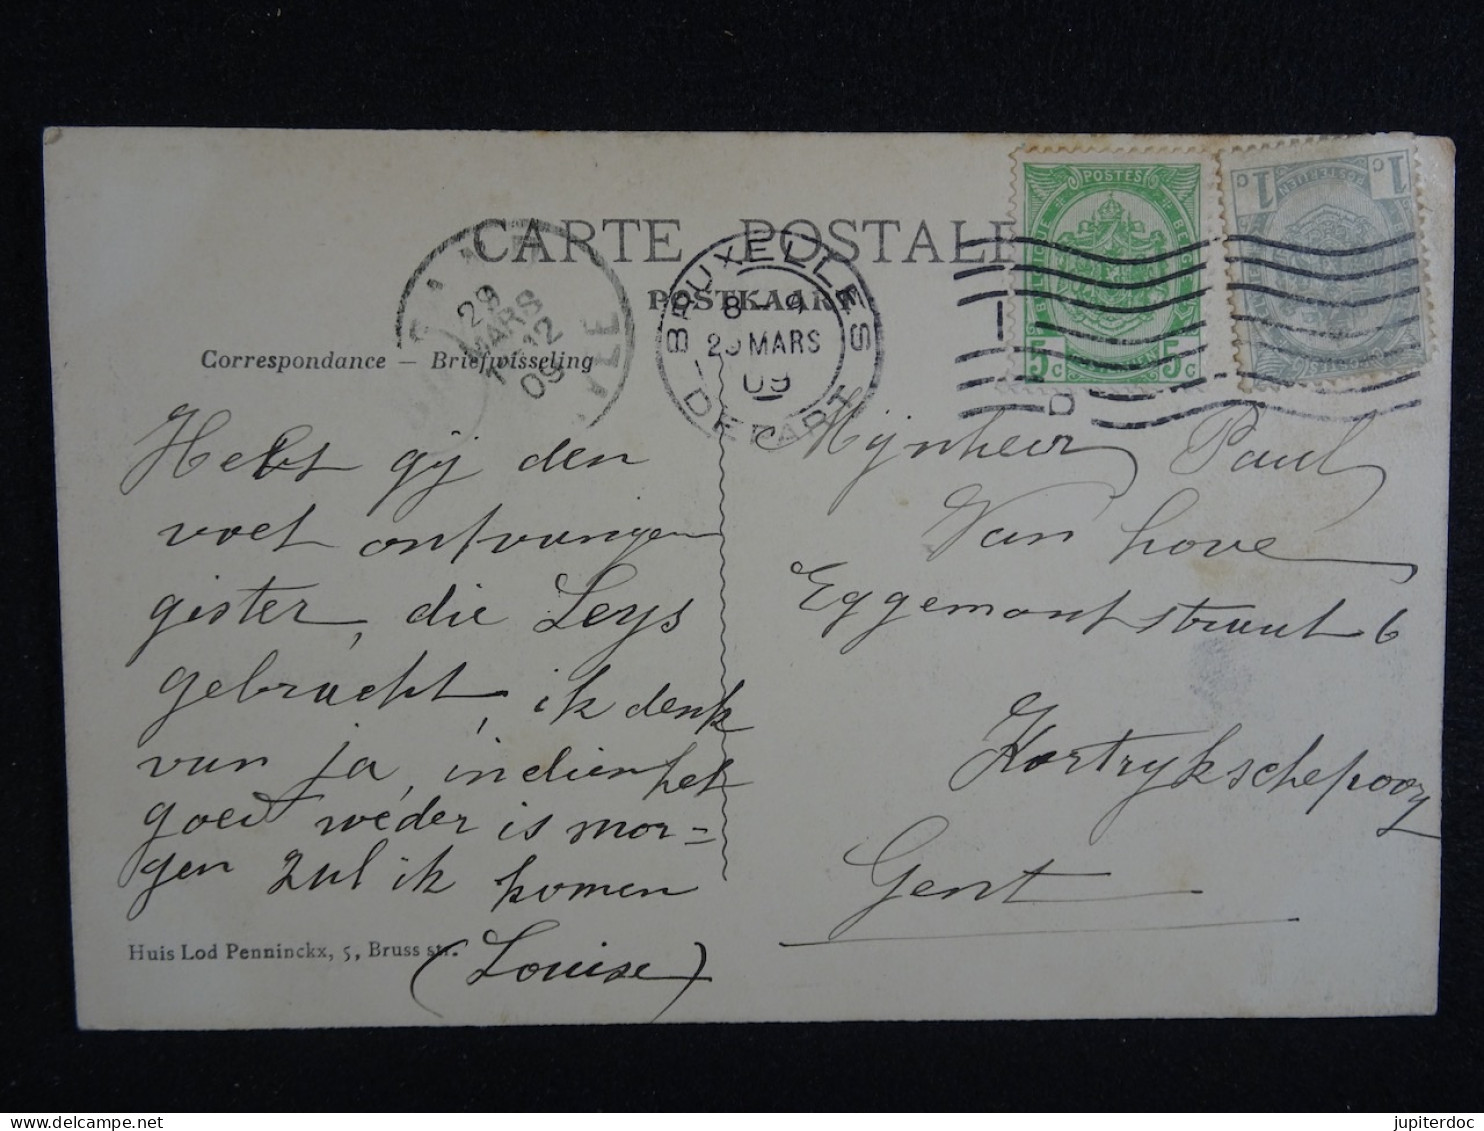 CARTE POSTALE
POSTKAART
Correspondance — Briefwisseling
BRUXELLES
8 – 9
29 MARS
09
DEPART
29
MARS
12
09
POSTES
BELGIQUE
5c 5c
1c 1c
Hebt gij den
voet ontvangen
gister, die Leys
gebracht, ik denk
van ja, indien het
goed weder is mor=
gen zal ik komen
(Louise)
Mijnheer Paul
Van hove
Eggemontstraat 6
Kortrykschepoort
Gent
Huis Lod Penninckx, 5, Bruss str.
jupiterdoc